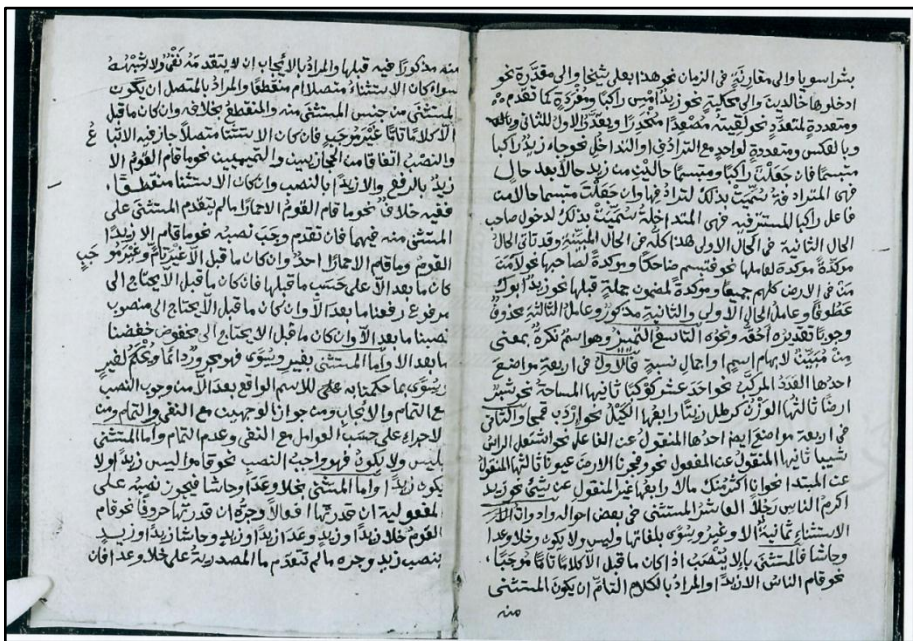 بشرا سويا والى مقارنة في الزمان نحو هذا بعلى شيخا والى مقدرة نحو
ادخلوها خالدين والى محكية نحو زيد امس راكبا ومفردة كما تقدم
ومتعددة لمتعدد نحو لقيته مصعدا منحدرا ويقدر الاول للثاني
وبالعكس ومتعددة لواحد مع الترادف او التداخل نحو جاء زيد راكبا
متبسما فان جعلت راكبا ومتبسما حالين من زيد حالا بعد حال
فهي المترادفة سميت بذلك لترادفها وان جعلت متبسما حالا من
فاعل راكبا المستتر فيه فهي المتداخلة سميت بذلك لدخول صاحب
الحال الثانية في الحال الاولى هذا كله في الحال المبينة وقد تاتى الحال
مؤكدة مؤكدة لعاملها نحو فتبسم ضاحكا ومؤكدة لصاحبها نحو لآمن
من في الارض كلهم جميعا ومؤكدة لمضمون جملة قبلها نحو زيد ابوك
عطوفا وعامل الحال الاولى والثانية مذكور وعامل الثالثة محذوف
وجوبا تقديره احقه ونحوه التاسع التمييز وهو اسم نكرة بمعنى
من مبين لابهام اسم او اجمال نسبة فالاول في اربعة مواضع
احدها العدد المركب نحو احد عشر كوكبا ثانيها المساحة نحو شبر
ارضا ثالثها الوزن كرطل زيتا رابعها الكيل نحو اردب قمحا والثاني
في اربعة مواضع ايضا احدها المنقول عن الفاعل نحو اشتعل الراس
شيبا ثانيها المنقول عن المفعول نحو وفجرنا الارض عيونا ثالثها المنقول
عن المبتدا نحو انا اكثر منك مالا رابعها غير المنقول عن شئ نحو زيد
اكرم الناس رجلا العاشر المستثنى في بعض احواله وادوات
الاستثناء ثمانية الا وغير وسوى بلغاتها وليس ولا يكون وخلا وعدا
وحاشا فالمستثنى بالا ينتصب اذا كان ما قبل الا كلاما تاما موجبا
نحو قام الناس الا زيدا والمراد بالكلام التام ان يكون المستثنى
منه
منه مذكورا فيه قبلها والمراد بالايجاب ان لا يتقدمه نفى ولا شبهه
سواء كان الاستثناء متصلا ام منقطعا والمراد بالمتصل ان يكون
المستثنى من جنس المستثنى منه والمنقطع بخلافه وان كان ما قبل
الا كلاما تاما غير موجب فان كان الاستثنا متصلا جاز فيه الاتباع
والنصب اتفاقا من الحجازيين والتميميين نحو ما قام القوم الا
زيد بالرفع والا زيدا بالنصب وان كان الاستثنا منقطعا
ففيه خلاف نحو ما قام القوم الا حمارا ما لم يتقدم المستثنى على
المستثنى منه فيهما فان تقدم وجب نصبه نحو ما قام الا زيدا
القوم وما قام الا حمارا احد وان كان ما قبل الا غير تام وغير موجب
كان ما بعد الا على حسب ما قبلها فان كان ما قبل الا يحتاج الى
مرفوع رفعنا ما بعد الا وان كان ما قبل الا يحتاج الى منصوب
نصبنا ما بعد الا وان كان ما قبل الا يحتاج الى مخفوض خفضنا
ما بعد الا واما المستثنى بغير وسوى فهو مجرور دائما ويحكم لغير
وسوى بما حكمنا به على للاسم الواقع بعد الا من وجوب النصب
مع التمام والايجاب ومن جواز الوجهين مع النفى والتمام ومن
الاجراء على حسب العوامل مع النفى وعدم التمام واما المستثنى
بليس ولا يكون فهو واجب النصب نحو قاموا ليس زيدا ولا
يكون زيدا واما المستثنى بخلا وعدا وحاشا فيجوز نصبه على
المفعولية ان قدرتها افعالا وجره ان قدرتها حروفا نحو قام
القوم خلا زيدا وزيد وعدا زيدا وزيد وحاشا زيدا وزيد
بنصب زيد وجره ما لم تتقدم ما المصدرية على خلا وعدا فان